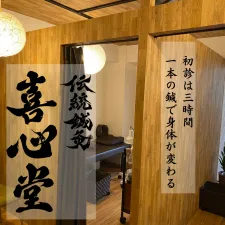 初診は三時間
一本の鍼で身体が変わる
伝統鍼灸
喜心堂